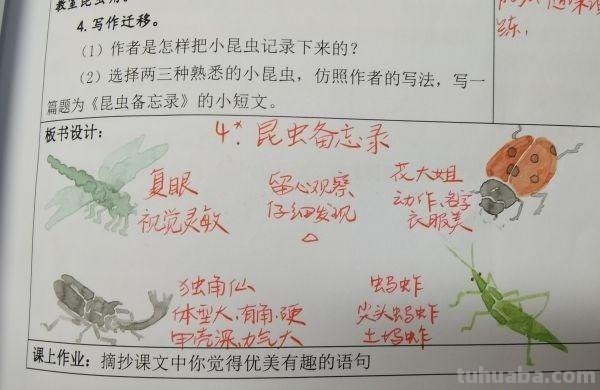 教室昆虫角。
4.写作迁移。
（1）作者是怎样把小昆虫记录下来的？
（2）选择两三种熟悉的小昆虫，仿照作者的写法，写一
篇题为《昆虫备忘录》的小短文。
练，
板书设计：
4*.昆虫备忘录
复眼
视觉灵敏
留心观察
仔细发现
花大姐
动作、名字
衣服美
独角仙
体型大、有角、硬
甲壳深、力气大
蚂蚱
尖头蚂蚱
土蚂蚱
课上作业：摘抄课文中你觉得优美有趣的语句
tuhuaba.com